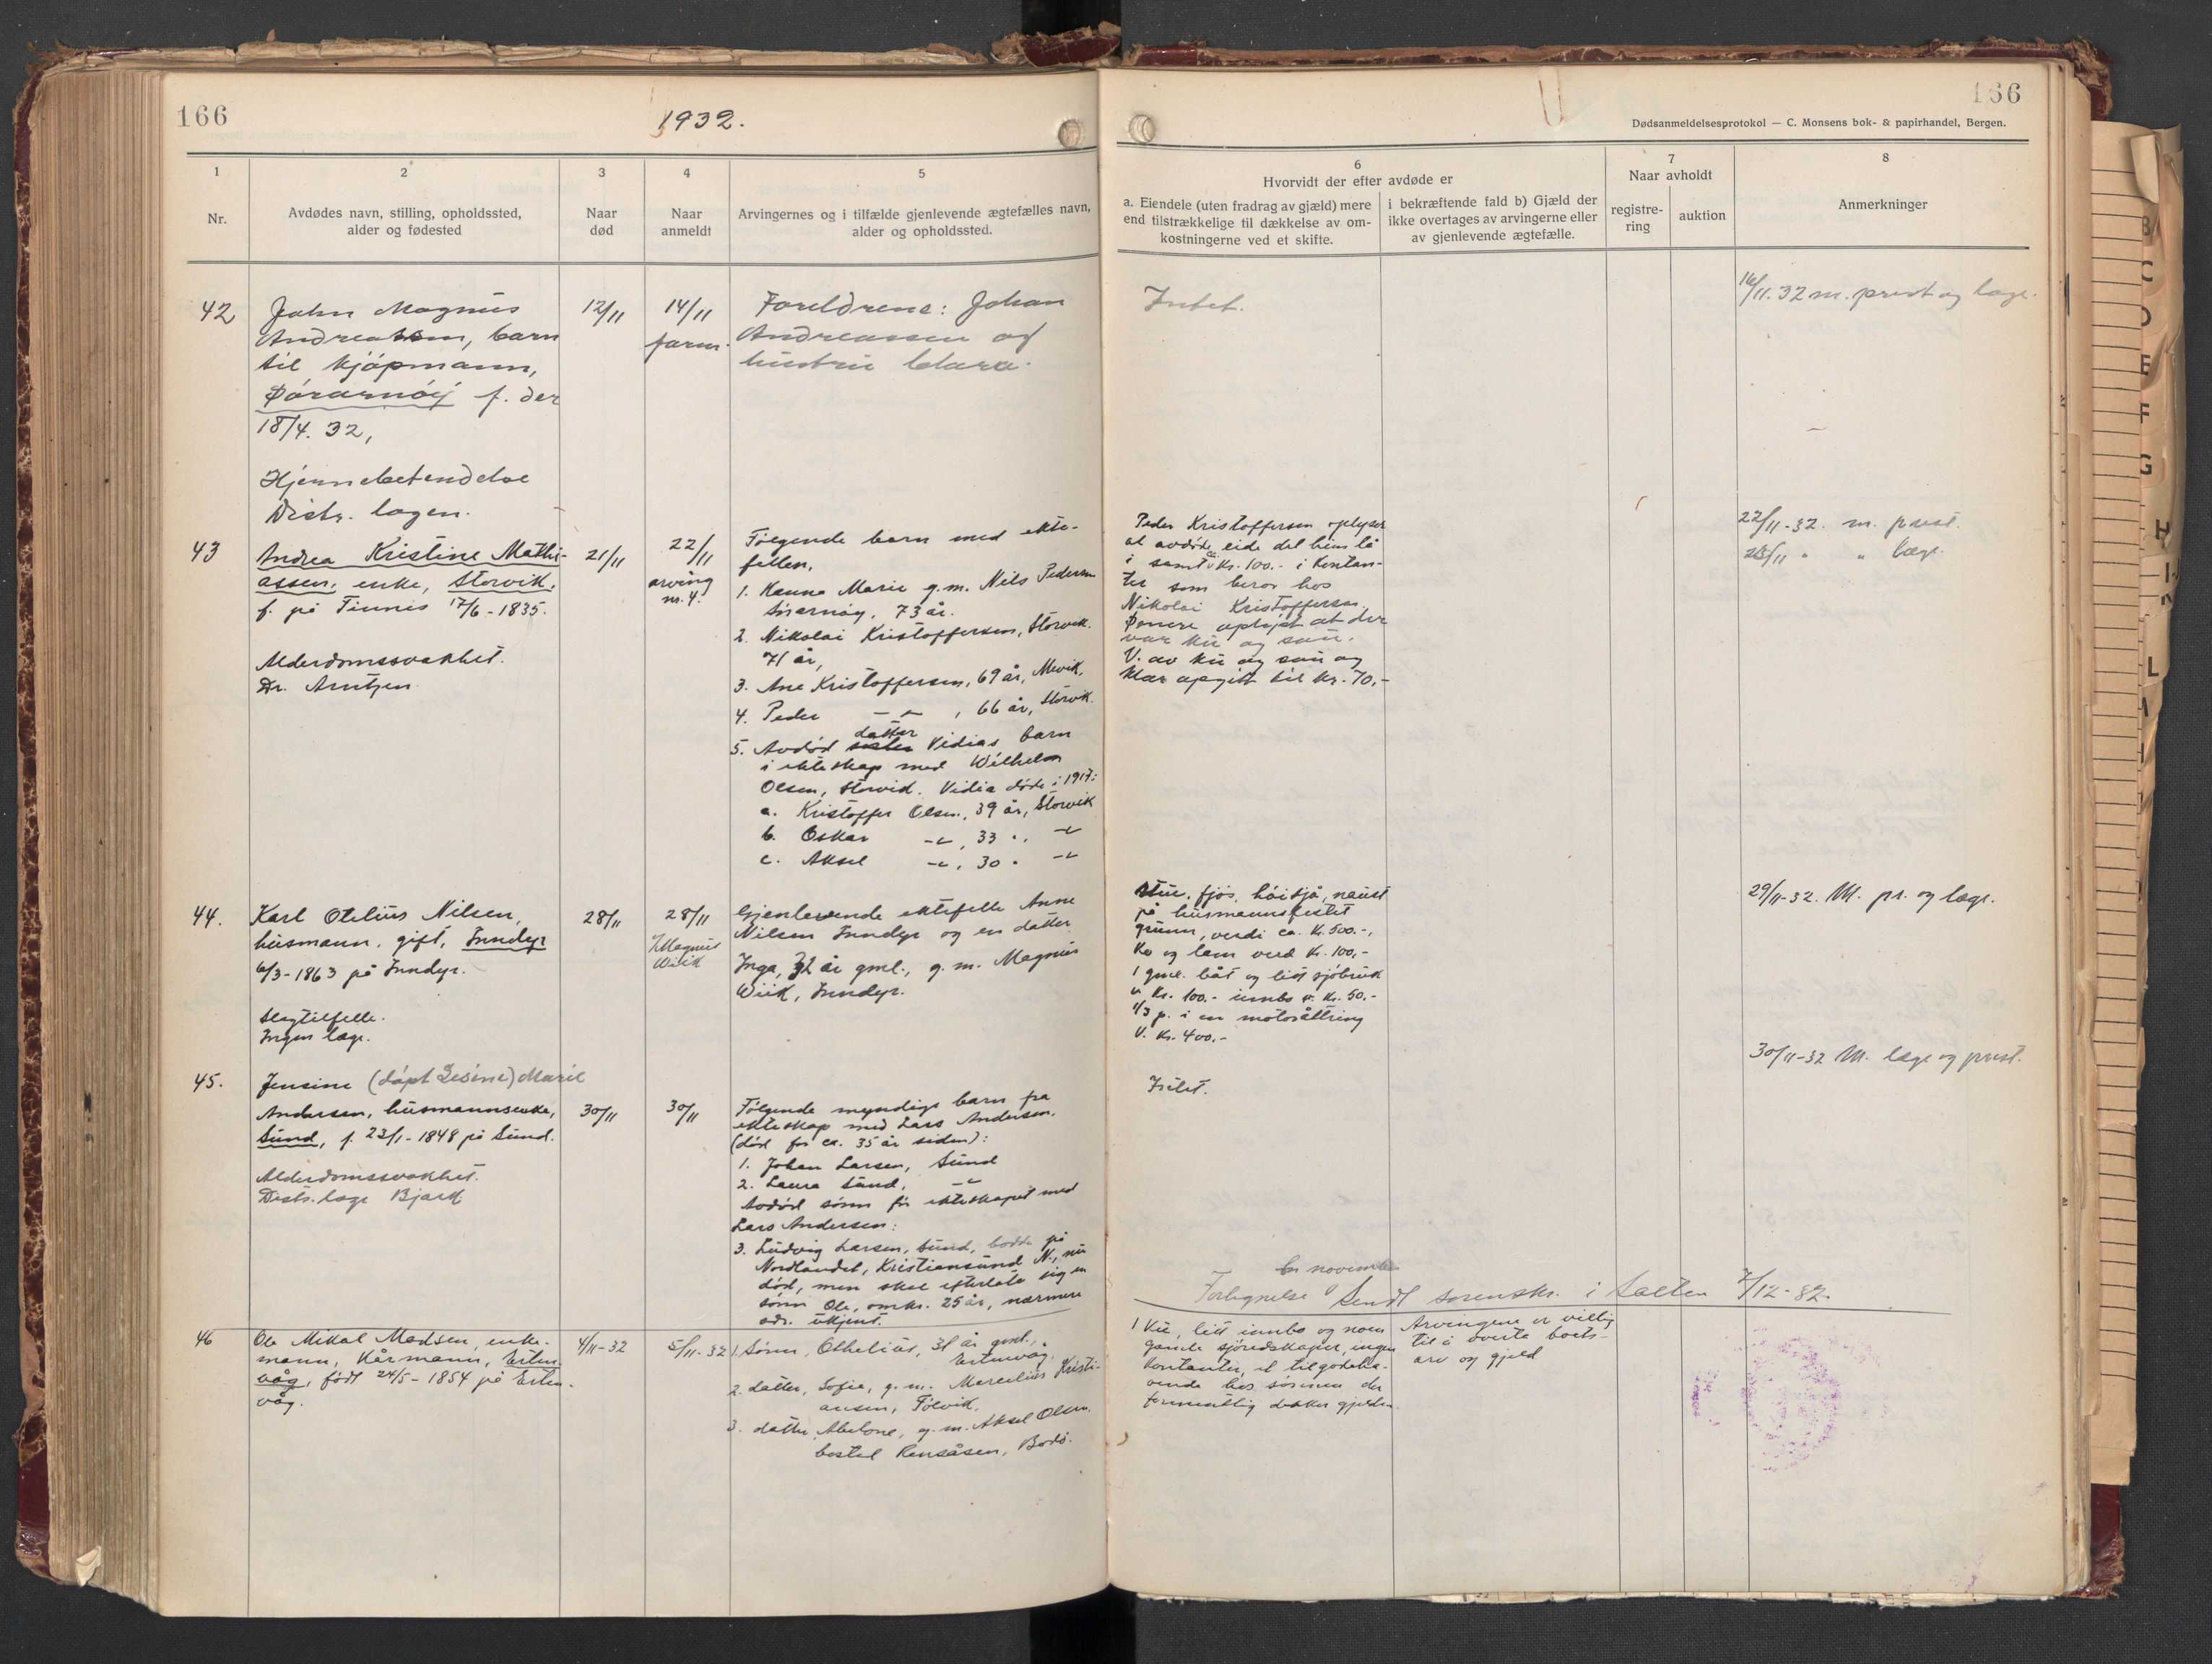 166
1932.
166
Dødsanmeldelsesprotokol — C. Monsens bok- & papirhandel, Bergen.
1
Nr.
2
Avdødes navn, stilling, opholdssted,
alder og fødested
3
Naar
død
4
Naar
anmeldt
5
Arvingernes og i tilfælde gjenlevende ægtefælles navn,
alder og opholdssted.
6
Hvorvidt der efter avdøde er
a. Eiendele (uten fradrag av gjæld) mere
end tilstrækkelige til dækkelse av om-
kostningerne ved et skifte.
i bekræftende fald b) Gjæld der
ikke overtages av arvingerne eller
av gjenlevende ægtefælle.
7
Naar avholdt
registre-
ring
auktion
8
Anmerkninger
42
John Magnus
Andreassen, barn
til kjøpmann,
Sørarnøy f. der
18/4. 32,
Hjernebetendelse
Distr. lægen.
12/11
14/11
faren.
Foreldrene: Johan
Andreassen og
hustru Clara.
Intet.
16/11. 32 m. prest og læge.
43
Andrea Kristine Mathi-
assen, enke, Storvik,
f. på Finnes 17/6 - 1835.
Alderdomssvakhet.
Dr. Arntzen
21/11
22/11
arving
nr. 4.
Følgende barn med ekte-
fellen,
1. Hanna Marie g.m. Nils Pedersen
Sørarnøy, 73 år.
2. Nikolai Kristoffersen, Storvik.
71 år,
3. Ane Kristoffersen, 69 år, Mevik,
4. Peder -"- , 66 år, Storvik.
5. Avdød datter Vidias barn
i ekteskap med Wilhelm
Olsen, Storvik. Vidia døde i 1917:
a. Kristoffer Olsen, 39 år, Storvik
b. Oskar -"-, 33 ", -"-
c. Aksel -"-, 30 " -"-
Peder Kristoffersen oplyser
at avdøde eide det hun lå
i samt kr. 100.- i kontan-
ter som beror hos
Nikolai Kristoffersen.
Senere oplyst at der
var ku og sau.
V. av ku og sau og
klær opgitt til kr. 70,-
22/11-32. m. prest.
23/11 " " læge.
44.
Karl Otelius Nilsen,
husmann, gift, Inndyr
6/3-1863 på Inndyr.
Slagtilfelle.
Ingen læge.
28/11
28/11
Magnus
Wiik
Gjenlevende ektefelle Anne
Nilsen Inndyr og en datter
Inga, 32 år gml., g. m. Magnus
Wiik, Inndyr.
Stue, fjøs, høisjå, naust
på husmannsfestet
grunn, verdi ca. kr. 500.-,
Ko og lam verd kr. 100,-
1 gml. båt og litt sjøbruk
v. kr. 100.- innbo v. kr. 50.-
1/3 p. i en motoråttring
V. kr. 400.-
29/11-32. M. pr. og læge.
45.
Jensine (døpt Gesine) Marie
Andersen, husmannsenke,
Sund, f. 23/1-1848 på Sund.
Alderdomssvakhet.
Distr. læge Bjark
30/11
30/11
Følgende myndige barn fra
ekteskap med Lars Andersen,
(død for ca. 35 år siden):
1. Johan Larsen, Sund
2. Laura Sund, -"-
Avdød sønn før ekteskapet med
Lars Andersen:
3. Ludvig Larsen, Sund, bodde på
Nordlandet, Kristiansund N., nu
død, men skal efterlate sig en
sønn Ole, omkr. 25 år, nærmere
adr. ukjent.
Intet.
30/11-32 M. læge og prest.
for november
Fortegnelse sendt sorenskr. i Salten 7/12-32.
46
Ole Mikal Madsen, enke-
mann, kårmann, Esten-
våg, født 24/5-1854 på Esten-
våg.
4/11-32
5/11-32
1. Sønn, Othelius, 31 år gml.,
Estenvåg.
2. datter, Sofie, g. m. Marcelius Kristi-
ansen,
3. datter, Abelone, g. m. Aksel Olsen
bosted Rensåsen, Bodø.
1 ku, litt innbo og noen
gamle sjøredskaper, ingen
kontanter, et tilgodeha-
vende hos sønnen der
formentlig dekker gjelden.
Arvingene er villig
til å overta boets
arv og gjeld